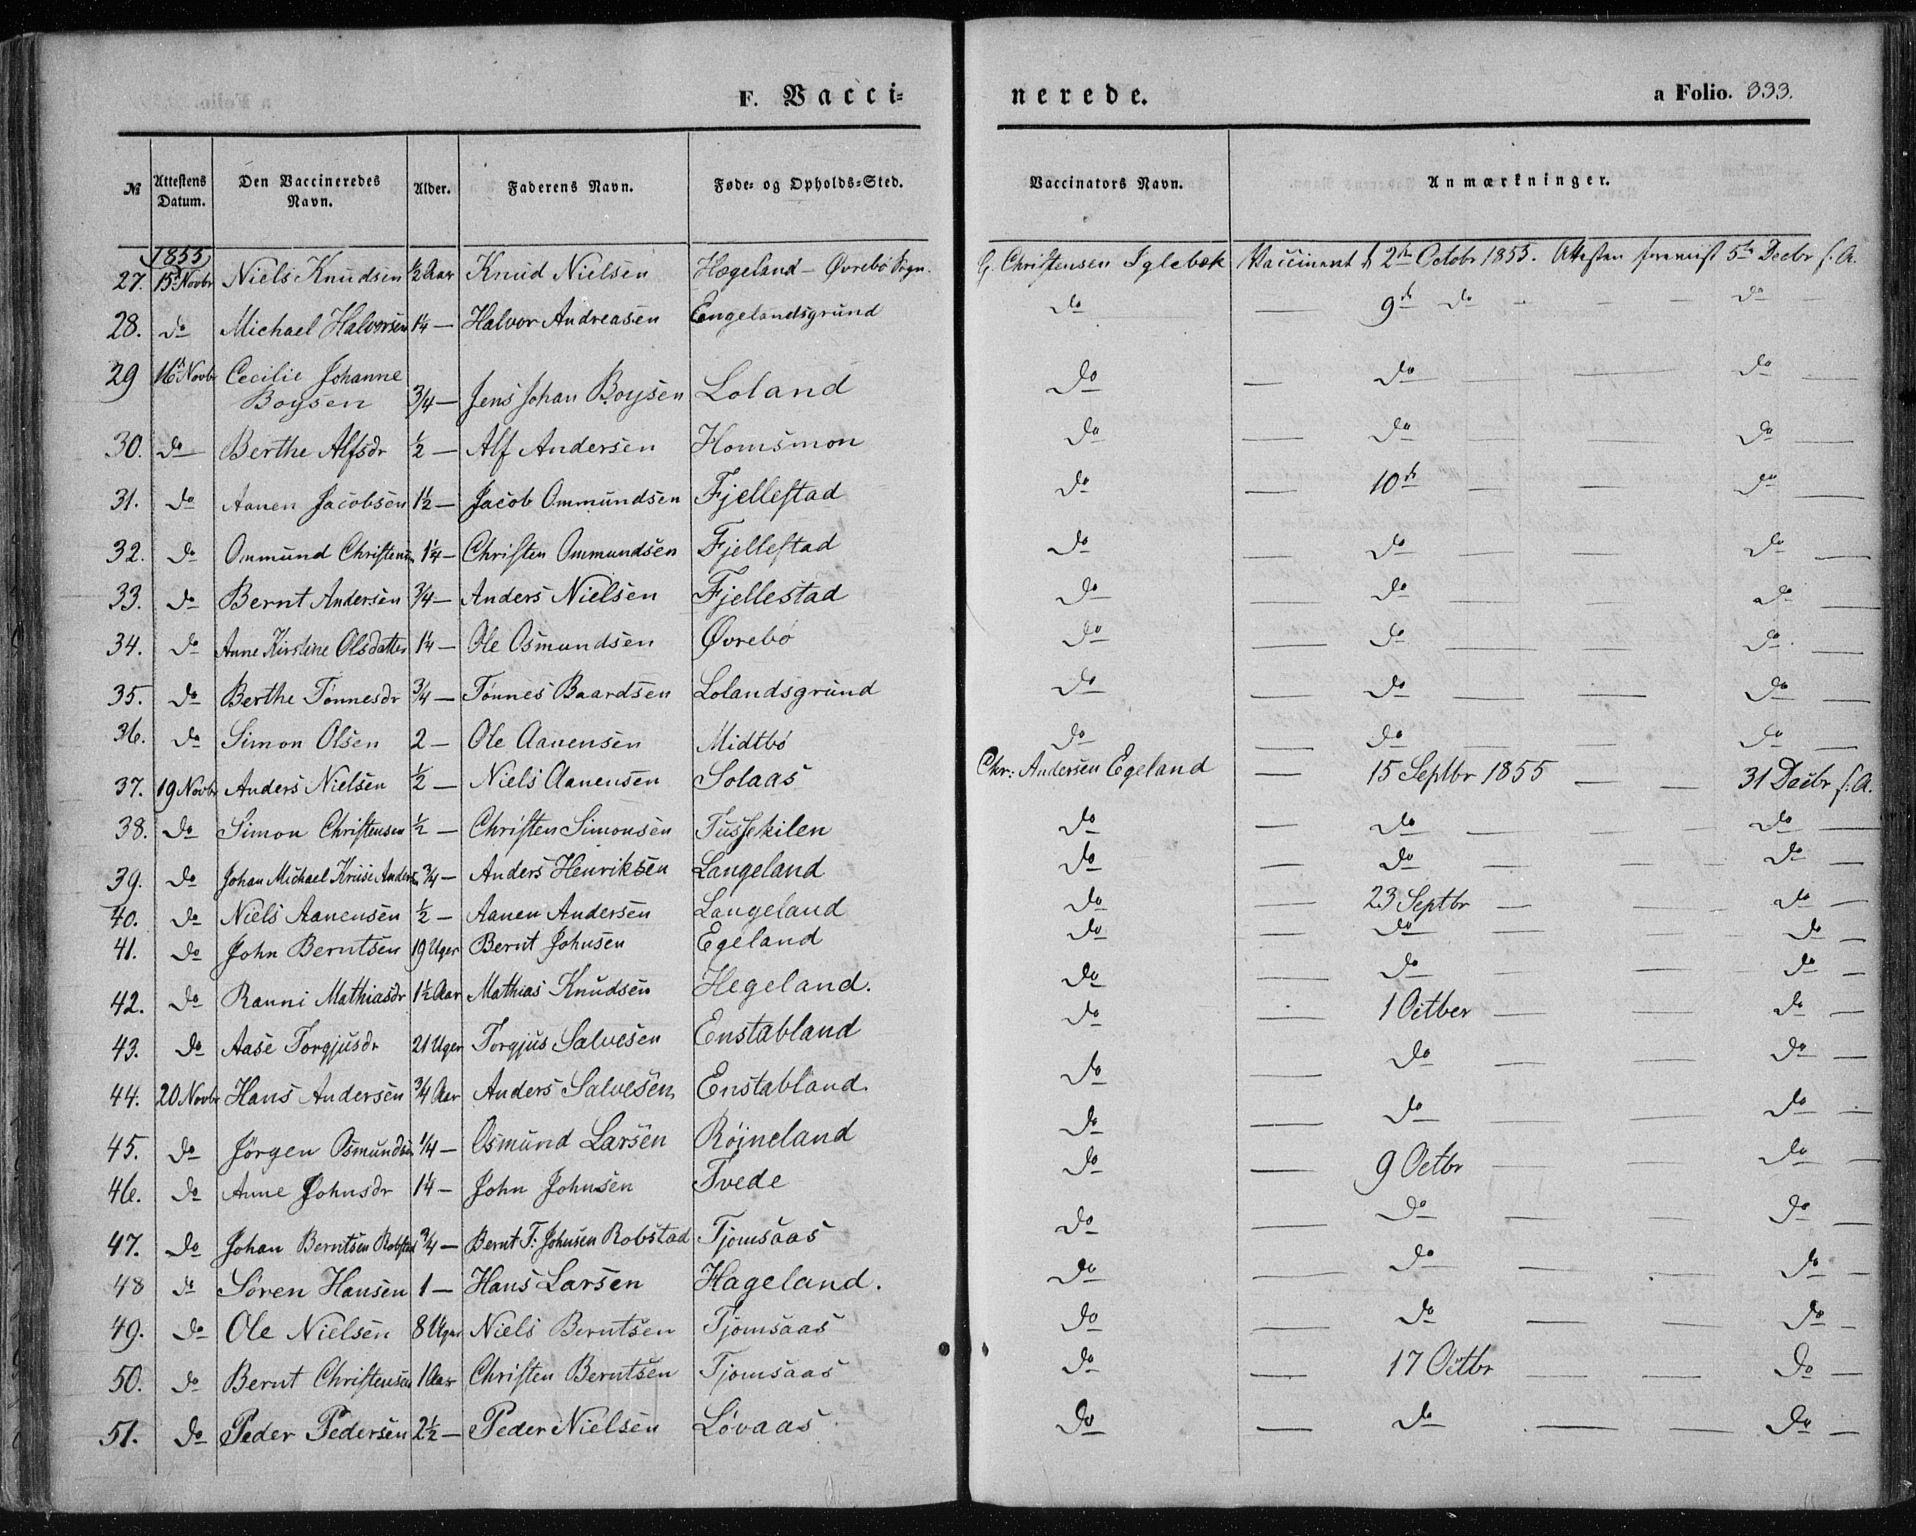 F. Vacci=
nerede.
a Folio. 333.
№ Attestens Datum. Den Vaccineredes Navn. Alder. Faderens Navn. Føde= og Opholds=Sted. Vaccinators Navn. Anmærkninger.
1855
27. 15 Novbr Niels Knudsen ½ Aar Knud Nielsen Hægeland - Øvrebø Sogn. G. Christensen Iglebæk Vaccineret d 2den Octobr 1855. Attesten 5te Decbr s. A.
28. do Michael Halvorsen 1¼ — Halvor Andreasen Engelandsgrund do — 9de do — — — do —
29 16 Novbr Cecilie Johanne
Boysen ¾ — Jens Johan Boysen Loland do — do — — — do —
30. do Berthe Alfsdr ½ — Alf Andersen Homsmon do — do — — — do —
31. do Aanen Jacobsen 1½ — Jacob Ommundsen Fjellestad do — 10de — — — do —
32. do Ommund Christens. 1¼ — Christen Ommundsen Fjellestad do — do — — — do —
33. do Bernt Andersen ¾ — Anders Nielsen Fjellestad do — do — — — do —
34. do Anne Kirstine Olsdatter 1¼ — Ole Osmundsen Øvrebø do — do — — — do —
35. do Berthe Tønnesdr ¾ — Tønnes Baardsen Lolandsgrund do — do — — — do —
36. do Simon Olsen 2 — Ole Aanensen Midtbø do — do — — — do —
37. 19 Novbr Anders Nielsen ½ — Niels Aanensen Solaas Chr: Andersen Egeland — 15 Septbr 1855 — — 31 Decbr s. A.
38. do Simon Christensen ½ — Christen Simonsen Tussekilen do — do — — — do —
39. do Johan Michael Kruse Anders. ¾ — Anders Henriksen Langeland do — do — — — do —
40. do Niels Aanensen ½ — Aanen Andersen Langeland do — 23 Septbr — — — do —
41. do John Berntsen 19 Uger Bernt Johnsen Egeland do — do — — — do —
42. do Ranni Mathiasdr 1½ Aar Mathias Knudsen Hegeland. do — do — — — do —
43. do Aase Torgjusdr 21 Uger Torgjus Salvesen Enstabland do — 1 Octber — — — do —
44. 20 Novbr Hans Andersen ¾ Aar Anders Salvesen Enstabland. do — do — — — do —
45. do Jørgen Osmundsn ¼ — Osmund Larsen Røineland do — do — — — do —
46. do Anne Johnsdr 1¼ — John Johnsen Tvede do — 9 Octbr — — — do —
47. do Johan Berntsen Robstad ¾ — Bernt T: Johnsen Robstad Tjomsaas do — do — — — do —
48 do Søren Hansen 1 — Hans Larsen Hageland. do — do — — — do —
49. do Ole Nielsen 8 Uger Niels Berntsen Tjomsaas do — do — — — do —
50. do Bernt Christensen 1 Aar Christen Berntsen Tjomsaas do — 17 Octbr — — — do —
51. do Peder Pedersen 2½ — Peder Nielsen Løvaas do — do — — — do —